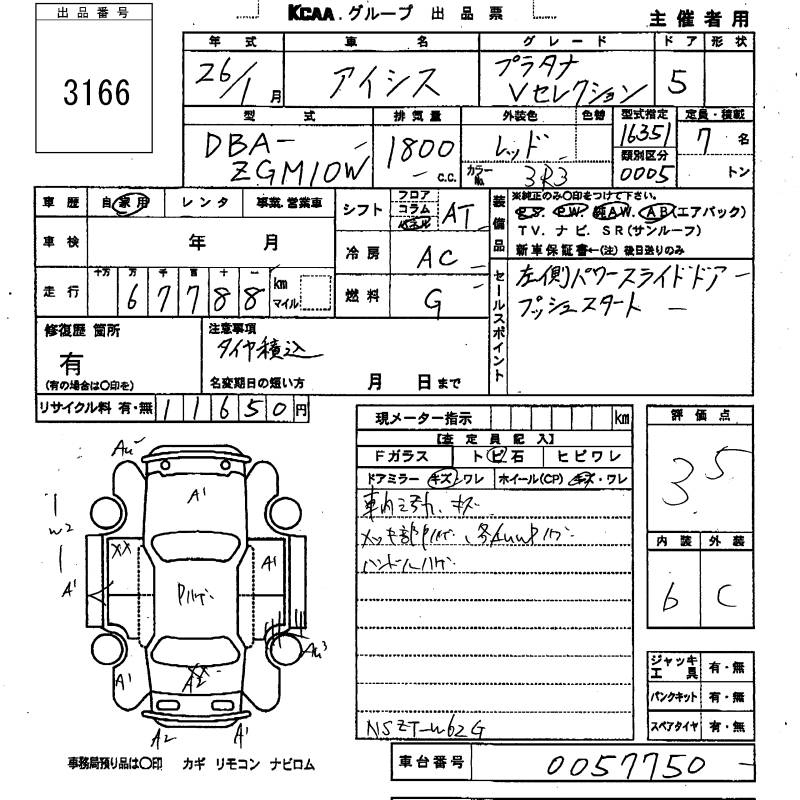 KCAA.グループ 出品票
主催者用
出品番号
3166
年式 車名 グレード ドア 形状
26/1月 アイシス プラタナ Vセレクション 5
型式 排気量 外装色 色替 型式指定 定員・積載
DBA-ZGM10W 1800 c.c. レッド 16351 7名
カラーNo. 3R3 類別区分 0005 トン
車歴 自家用 レンタ 事業.営業車
車検 年 月
走行 十万 万 千 百 十 一
67788 km マイル
シフト フロア コラム パネル AT
冷房 AC
燃料 G
装備品 ※純正のみ〇印をつけて下さい。
P.S. P.W. 純A.W. A.B(エアバック)
TV. ナビ. SR(サンルーフ)
新車保証書←(注)後日送りのみ
セールスポイント
左側パワースライドドア
プッシュスタート
修復歴 箇所
有
(有の場合は〇印を)
注意事項
タイヤ積込
名変期日の短い方 月 日まで
リサイクル料 有・無 11650円
現メーター指示 km
【査定員記入】
Fガラス トビ石 ヒビワレ
ドアミラー キズ・ワレ ホイール(CP) キズ・ワレ
車内ヨゴレ、キズ
メッキ部Pハゲ、各AuwPハゲ
ハンドルハゲ
NSZT-W62G
評価点
3.5
内装 外装
6 C
ジャッキ工具 有・無
パンクキット 有・無
スペアタイヤ 有・無
車台番号 0057750
Au1
A1
W2
XX
A1
A1
Pハゲ
Au3
A1
XX
A2
A2
A1
事務局預り品は〇印 カギ リモコン ナビロム